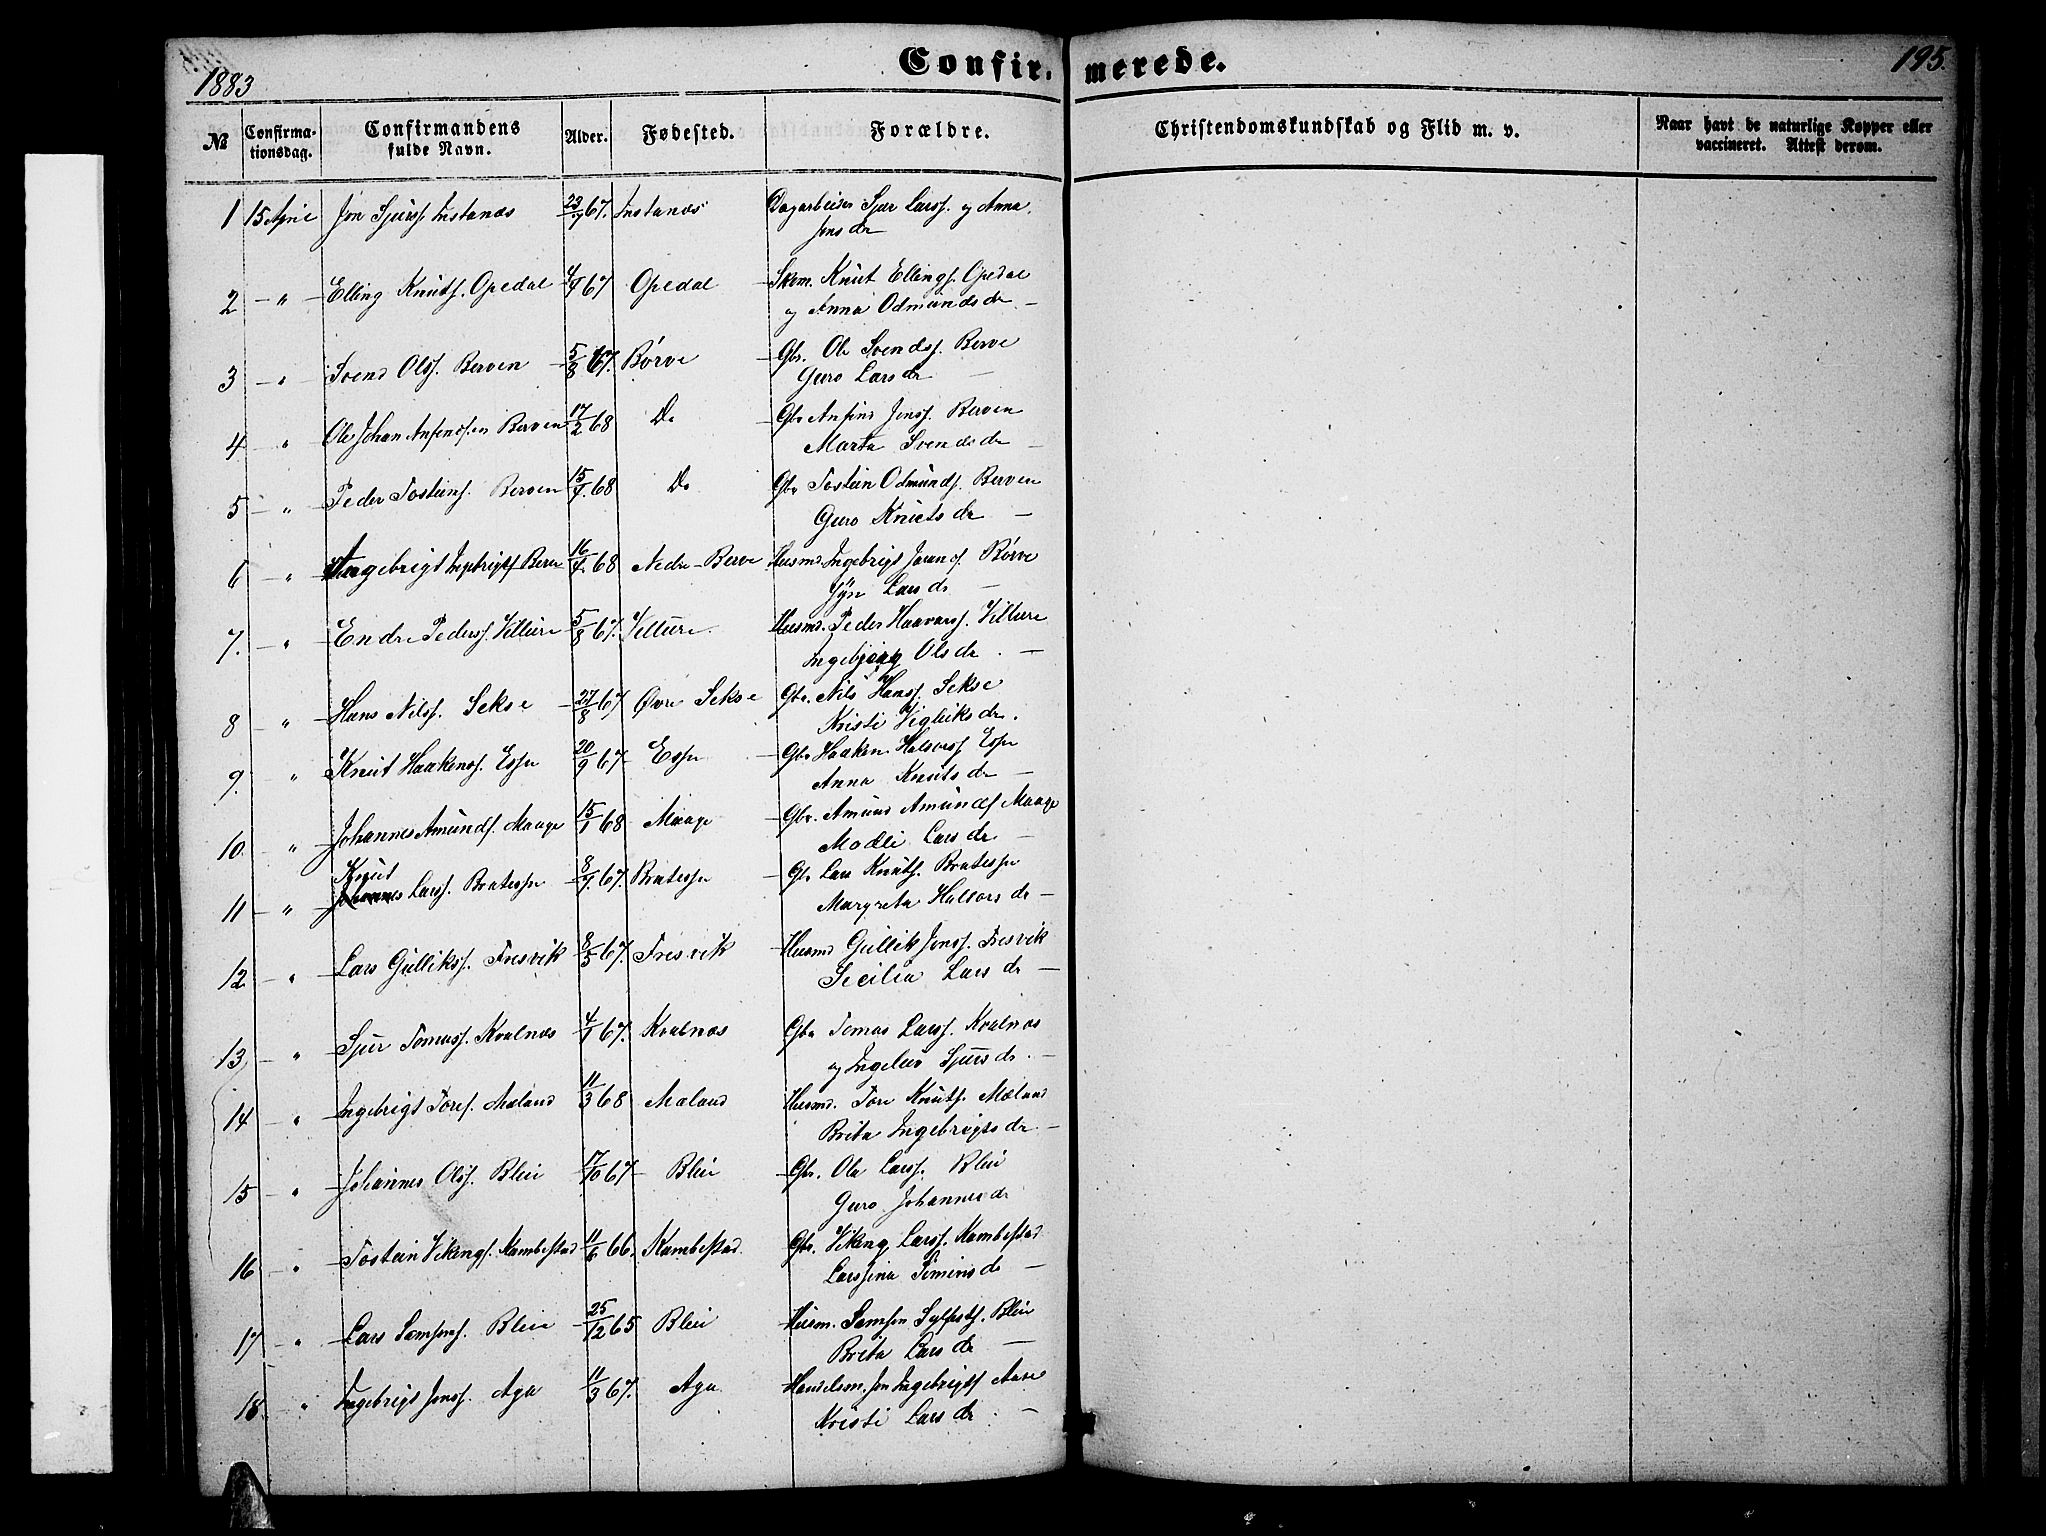 1883
Confir. merede.
195.
№ Confirma- Confirmandens Alder. Fødested. Forældre. Christendomskundskab og Flid m. v. Naar havt de naturlige Kopper eller
tionsdag. fulde Navn. vaccineret. Attest derom.
1 15 April Jon Sjurs. Instanæs 23/9 67. Instanæs Dagarbeider Sjur Larss. og Anna
Jonsdr
2 – " – Elling Knuts. Opedal 4/4 67 Opedal – Skom. Knut Ellings. Opedal
og Anna Odmundsdr –
3 – " Svend Ols. Berven – 5/8 67. Børve – Gbr. Ole Svends. Berve
Guro Larsdr –
4 – " Ole Johan Anfinssen Berven 17/2 68 Do – Gbr Anfind Jons. Berven
Marta Svendsdr –
5 – " Peder Tosteins. Berven 15/4 68 Do Gbr Tostein Odmunds. Berven
Guro Knutsdr –
6 – " Ingebrigt Ingebrigts Berve 16/4 68 Nedre Berve Husmd. Ingebrigt Børve
Larsdr –
7. – " – Endre Peders. Villure 5/8 67. Villure. Husmd. Peder Haavars. Villure
Ingebjørg Olsdr. –
8 " – Hans Nils. Sekse – 27/8 67 Øvre Sekse Gbr. Nils Hans. Sekse
Kristi Vigleiksdr.
9. " – Knut Haakens. Espe 20/9 67 – Espe – Gbr Haaken Halvors. Espe
Anna Knutsdr –
10. " – Johannes Amunds. Maage 15/1 68 – Maage – Gbr. Amund Amunds Maage
Modli Larsdr –
Knut
11 – " – Johannes Larss. Bratespe – 8/9 67. Bratespe – Gbr Lars Knuts. Bratespe
Margreta Halvorsdr –
12 – " Lars Gulliks. Tresvik 8/5 67. Tresvik – Husmd Gullik Jons. Tresvik
Sicilia Larsdr –
13 – " Sjur Tomass. Kvalnæs 4/1 67. Kvalnæs Gbr Tomas Larss. Kvalnæs
og Sjursdr. –
14 – " – Ingebrigt Tores. Mæland 11/3 68 Mæland Husmd. Tore Knuts. Mæland
Brita Ingebrigtsdr. –
15 – " – Johannes Ols. Bleie 17/10 67 – Bleie – Gbr. Ole Larss. Bleie
Guro Johannesdr
16 – " – Tostein Vikings. Kambestad 11/6 66. Kambestad. Gbr. Viking Larss. Kambestad
Simensdr –
17 – " – Lars Samsons. Bleie – 25/12 65 Bleie Husm. Samson Bleie
Brita Larsdr –
18. " – Ingebrigt Jons. Aga 11/3 67. Aga. Handelsm. Jon Ingebrigts Aase
Kristi Larsdr. –